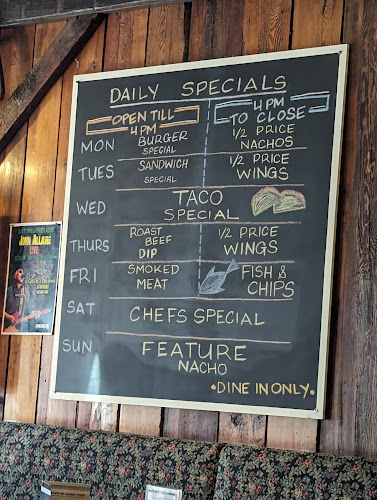 DAILY SPECIALS
OPEN TILL
4PM
4PM
TO CLOSE
MON
BURGER
SPECIAL
1/2 PRICE
NACHOS
TUES
SANDWICH
SPECIAL
1/2 PRICE
WINGS
WED
TACO
SPECIAL
THURS
ROAST
BEEF
DIP
1/2 PRICE
WINGS
FRI
SMOKED
MEAT
FISH &
CHIPS
SAT
CHEFS SPECIAL
SUN
FEATURE
NACHO
•DINE IN ONLY•
JOHN ALLAIRE
LIVE